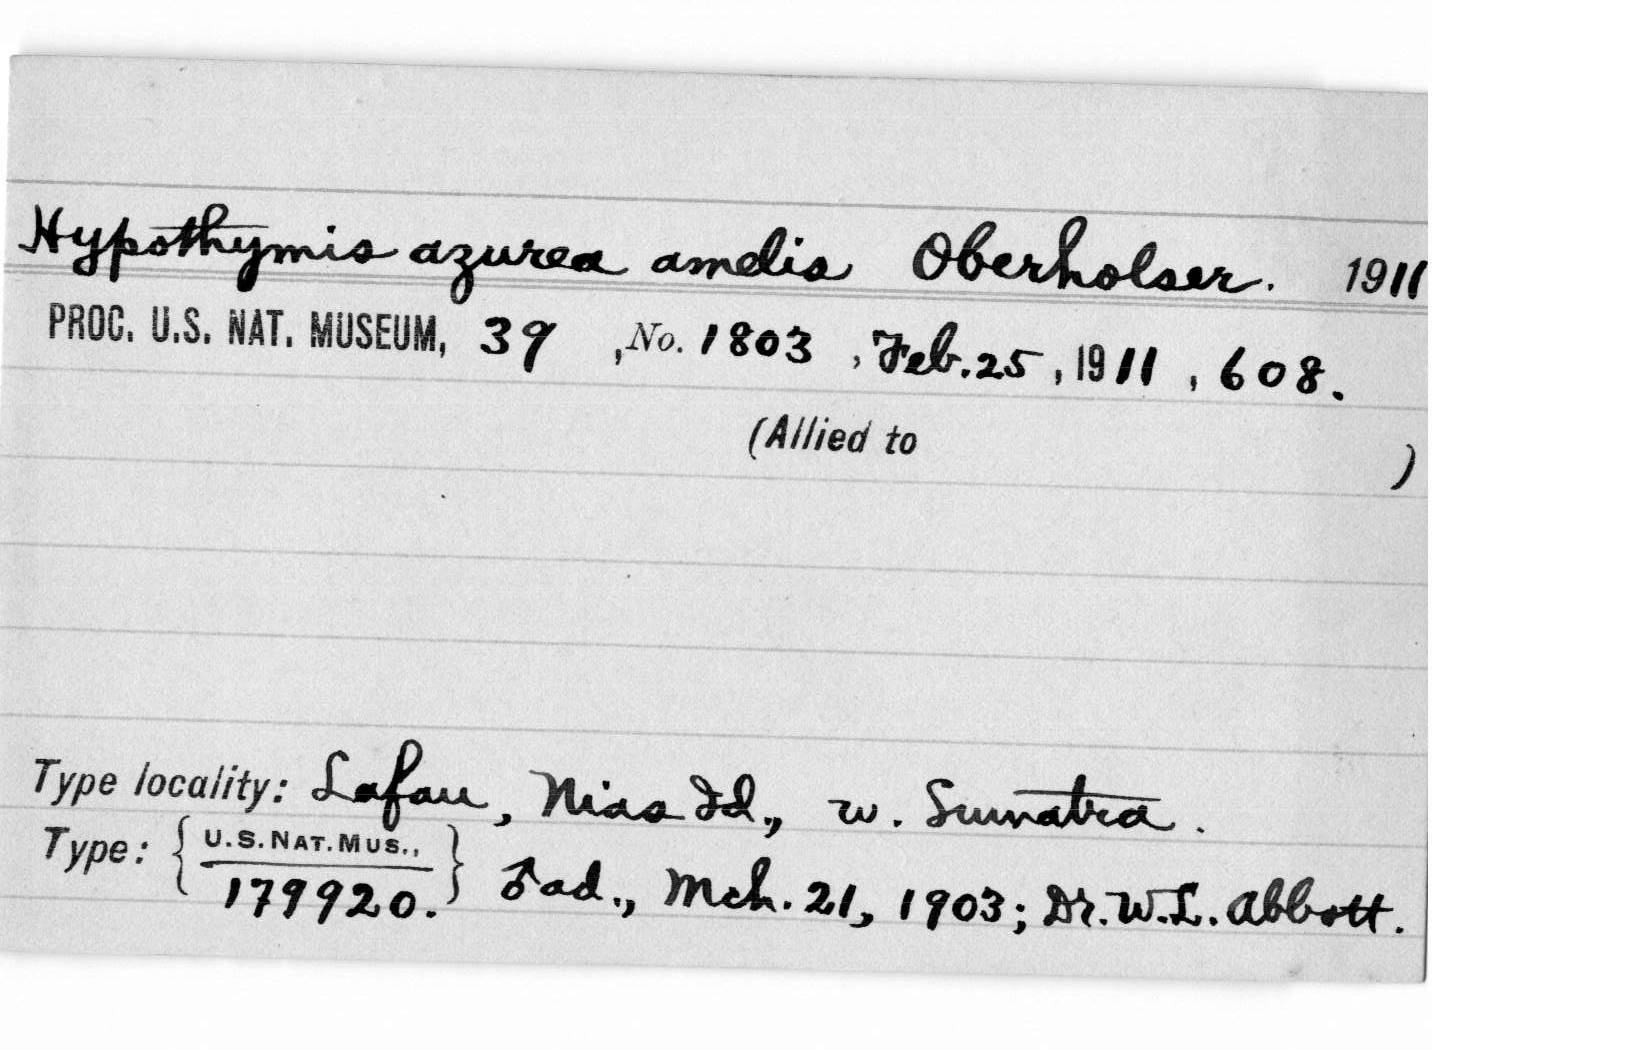 Hypothymis azurea amelis Oberholser. 1911
PROC. U.S. NAT. MUSEUM, 39 , No. 1803 , Feb. 25 , 1911 , 608.
(Allied to )
Type locality: Lafau, Nias Id., w. Sumatra.
Type: { U.S. NAT. MUS., }
179920. ♂ ad., Mch. 21, 1903; Dr. W. L. Abbott.